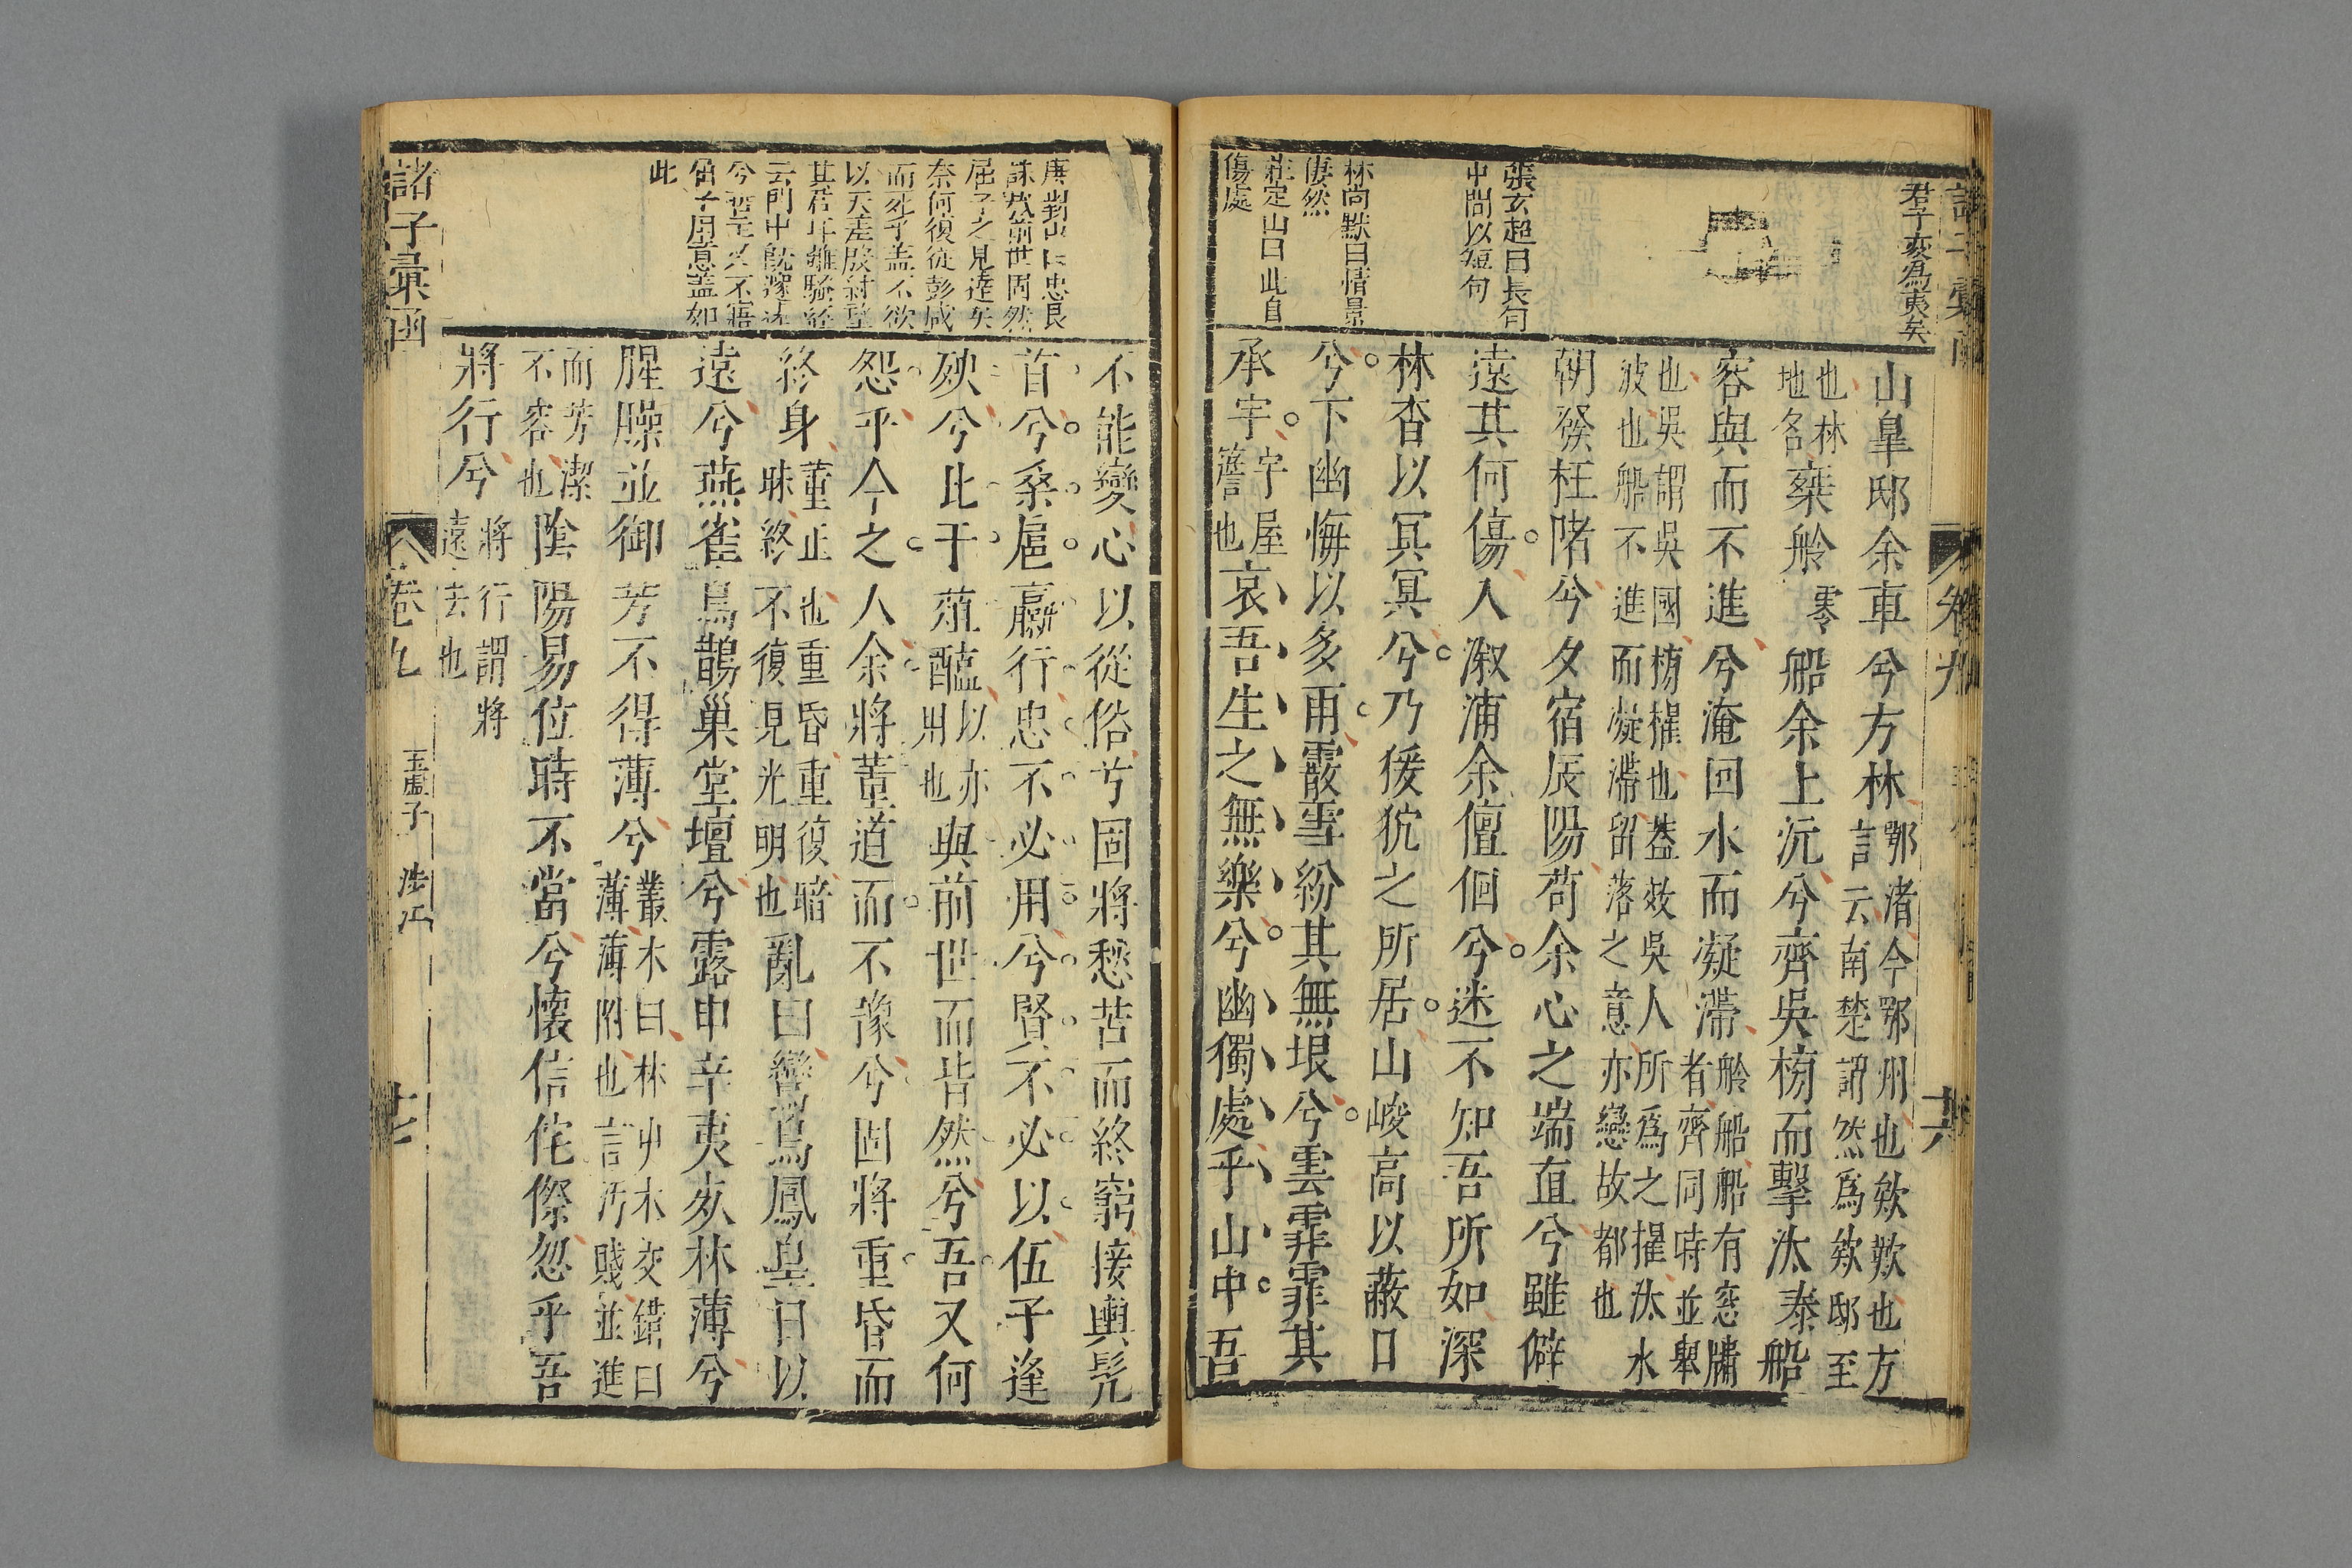 君子亥爲夷矣
張玄超曰長句
中間以短句
林尚默曰情景
悽然
莊定山曰此自
傷處
山皐邸余車兮方林鄂渚今鄂州也欸歎也方
言云南楚謂然爲欸邸至
也林
地名椉舲零船余上沅兮齊吳榜而擊汰泰船
容與而不進兮淹回水而凝滯舲船船有窓牗
者齊同時並舉
也吳謂吳國榜櫂也蓋效吳人所爲之櫂汰水
波也船不進而凝滯留落之意亦戀故都也
朝發枉陼兮夕宿辰陽苟余心之端直兮雖僻
遠其何傷入溆浦余儃佪兮迷不知吾所如深
林杳以冥冥兮乃猨狖之所居山峻高以蔽日
兮下幽悔以多雨霰雪紛其無垠兮雲霏霏其
承宇宇屋
簷也哀吾生之無樂兮幽獨處乎山中吾
卷九
唐對山曰忠良
誅戮前世固然
屈子之見達矣
奈何復從彭咸
而死乎蓋不欲
此
不能變心以從俗兮固將愁苦而終窮接輿髡
首兮桑扈臝行忠不必用兮賢不必以伍子逢
殃兮比干葅醢以亦
用也與前世而皆然兮吾又何
怨乎今之人余將董道而不豫兮固將重昏而
終身董正也重昏重復暗
昧終不復見光明也亂曰鸞鳥鳳皇日以
遠兮燕雀烏鵲巢堂壇兮露申辛夷死林薄兮
腥臊並御芳不得薄兮叢木曰林屮木交錯曰
薄薄附也言汚賤並進
而芳潔
不容也陰陽易位時不當兮懷信侘傺忽乎吾
將行兮將行謂將
遠去也
諸子彙函
卷九
玉虛子
涉江